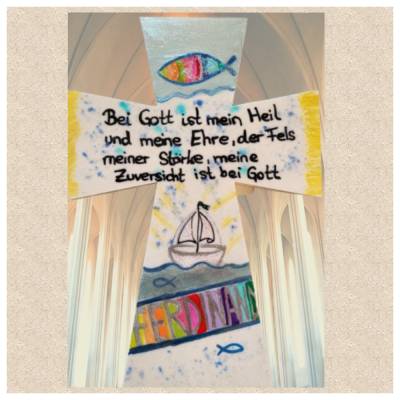 Bei Gott ist mein Heil
und meine Ehre, der Fels
meiner Stärke, meine
Zuversicht ist bei Gott
FERDINAND